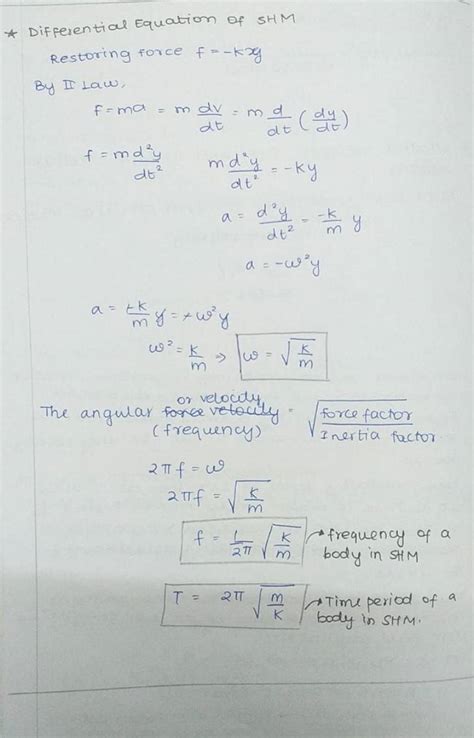 * Differential Equation of SHM
Restoring force f = -kxy
By II Law,
f = ma = m dv/dt = m d/dt (dy/dt)
f = m d²y/dt²    m d²y/dt² = -ky
a = d²y/dt² = -k/m y
a = -ω²y
a = +k/m y = +ω²y
ω² = k/m ⇒ ω = √(k/m)
or velocity
The angular force velocity = √(force factor/Inertia factor)
(frequency)
2πf = ω
2πf = √(k/m)
f = 1/2π √(k/m) → frequency of a
body in SHM
T = 2π √(m/k) → Time period of a
body in SHM.